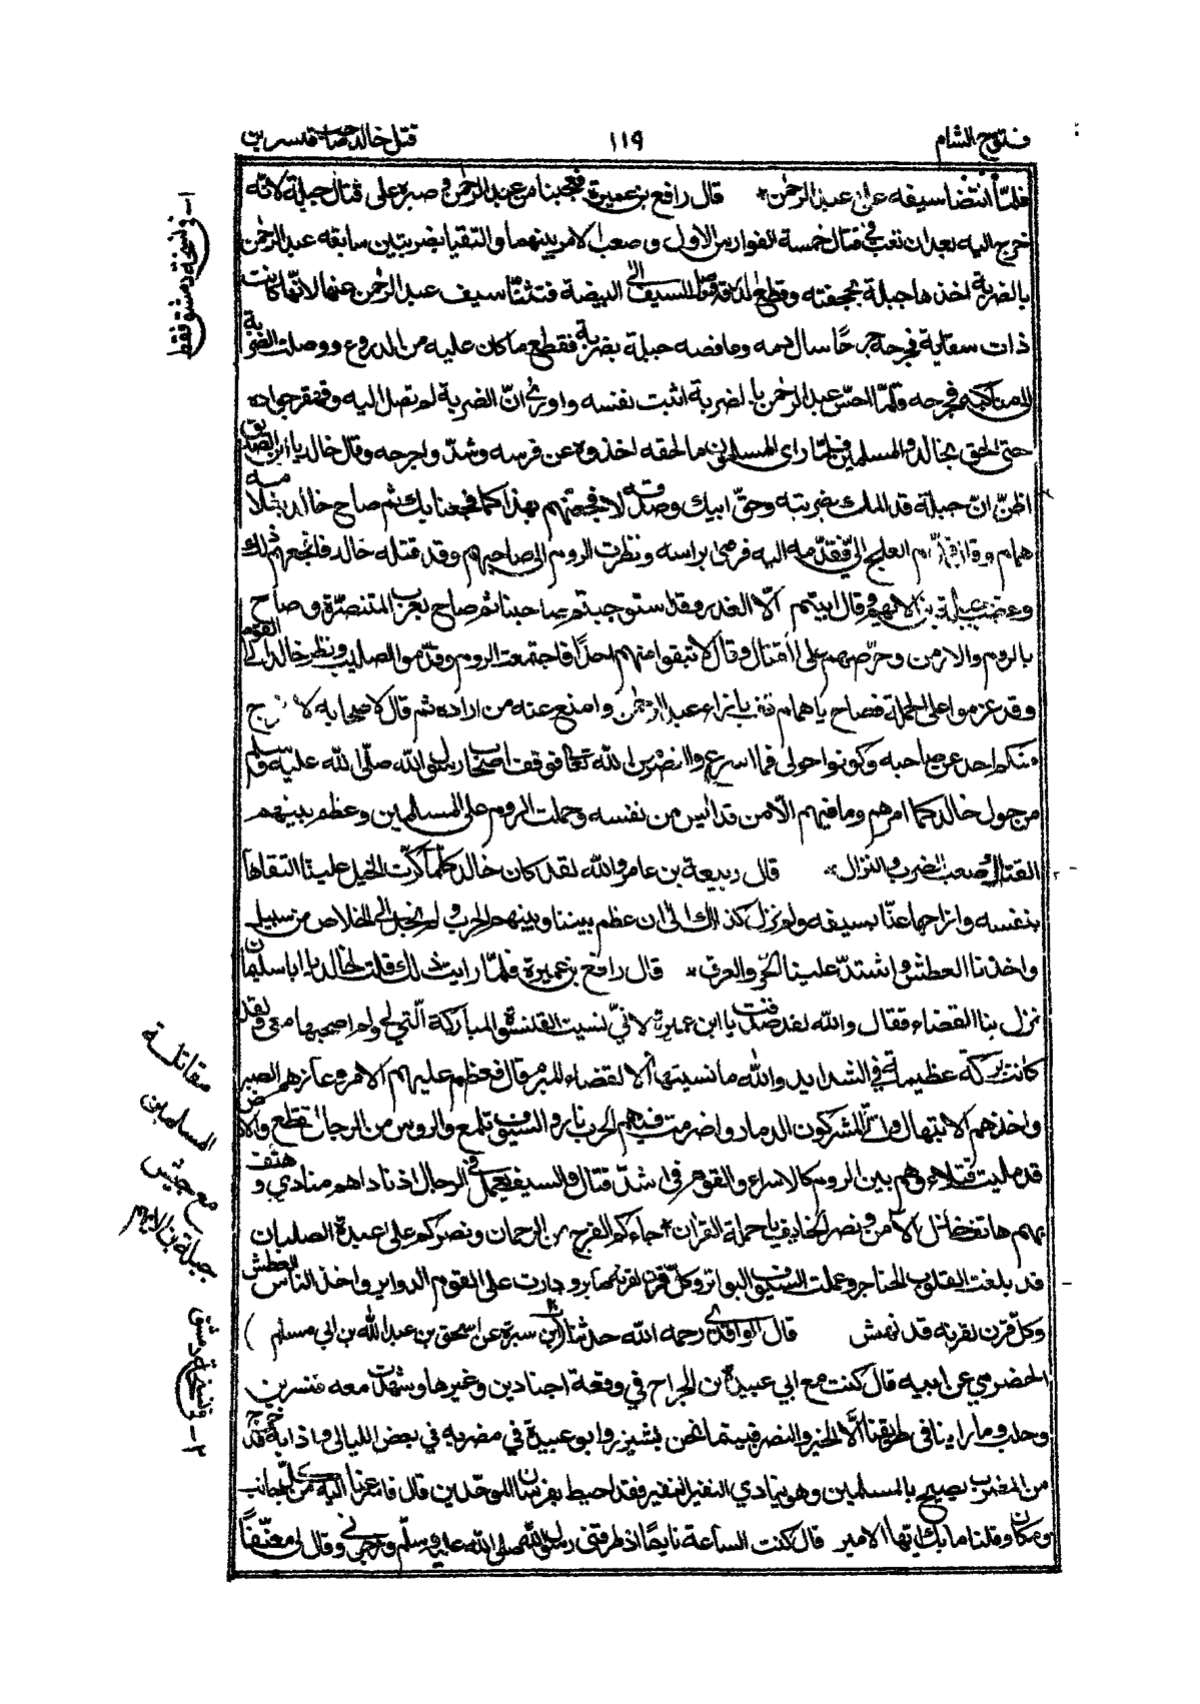 فتوح الشام
١١٩
قتل خالد صاحب قنسرين
فلمّا انتضا سيفه على عبد الرحمٰن * قال رافع بن عميرة فعجبنا من عبد الرحمٰن و صبره على قتال جبلة لانّه
خرج اليه بعد ان تعب في قتال خمسة الفوارس الاول وصعب الامر بينهما والتقيا بضربتين سابقه عبد الرحمٰن
بالضربة اخذها جبلة بحجفته وقطع السيف الى البيضة فتثنّا سيف عبد الرحمٰن عنها لانّها كانت
ذات سقاية فجرحه جرحًا سال دمه وما فصه جبلة بضربة فقطع ما كان عليه من الدروع ووصلت الضربة
الى منكبه فجرحه فلمّا احسّ عبد الرحمٰن بالضربة اثبت نفسه واورى انّ الضربة لم تصل اليه وقهقر جواده
حتى لحق بخالد والمسلمين فلمّا راى المسلمون ما لحقه اخذوه عن فرسه وشدّوا جرحه وقال خالد يا ابن الصديق
اظنّ انّ جبلة قد المك بضربته وحقّ ابيك وصدقه لافجعنّهم بهذا كما فجعنا بك ثم صاح خالد بغلامه
همام وقال قدّم العلج اليّ فقدّمه اليه فرمى براسه ونظرت الروم الى صاحبهم وقد قتله خالد فانجعهم ذلك
وغضب جبلة بن الايهم وقال ابيتم الّا الغدر وقد استوجبتم صاحبنا ثم صاح بعرب المتنصّرة وصاح
بالروم والارمن وحرّصهم على القتال وقال لا تبقوا منهم احدًا فاجتمعت الروم وقدّموا الصليب ونظر خالد الى القوم
وقد عزموا على الحملة فصاح يا همام قف بازاء عبد الرحمٰن وامنع عنه من اراده ثم قال لاصحابه لا يخرج
منكم احد عن صاحبه وكونوا حولى فما اسرع والنصر من الله تعالى فوقف اصحاب رسول الله صلّى الله عليه وسلّم
من حول خالد كما امرهم وما فيهم الّا من قد ائيس من نفسه وحملت الروم على المسلمين وعظم بينهم
القتال وصعب الضرب والنزال * قال ربيعة بن عامر والله لقد كان خالد كلّما كرّت الخيل علينا التقاها
بنفسه وازاحها عنّا بسيفه ولم نزل كذلك الى ان عظم بيننا وبينهم الحرب ولم نجد الى الخلاص من سبيل
واخذنا العطش واشتدّ علينا الحرّ والعرق * قال رافع بن عميرة فلمّا رايت ذلك قلت لخالد يا ابا سليمان
نزل بنا القضاء فقال والله لقد صدقت يا ابن عميرة لانّي نسيت القلنسوة المباركة الّتي لي ولم اصحبها معى ولقد
كانت بركة عظيمة في الشدايد والله ما نسيتها الّا لقضاء المبرم قال فعظم عليهم الامر وعازهم الصبر
واخذهم الابتهال وراى المشركون الدمار واضرمت فيهم الحرب نار والسيوف تلمع والروس من الرجال تقطع والارض
قد مليت قتلاء وهم بين الروم كالاسراء والقوم في اشدّ قتال والسيف يعمل في الرجال اذ ناداهم منادي وهتف
بهم هاتف خذل الآمن ونصر الخايف يا حملة القرآن جاءكم الفرج من الرحمان ونصركم على اعبدة الصلبان
قد بلغت القلوب الحناجر وعملت السيوف البواتر وكلّ قرن لقرنه مبارز ودارت على القوم الدواير واخذ الناس العطش
وكلّ قرن لقرنه قد نهش قال الواقدى رحمه الله حدثنا (ابن سبرة عن اسحق بن عبد الله بن ابي مسلم)
الحضرمي عن ابيه قال كنت مع ابي عبيدة بن الجراح في وقعة اجنادين وغيرها وشهدت معه قنسرين
وحلب وما راينا في طريقنا الّا الخير والنصر فبينما نحن بشيزر وابو عبيدة في مضربه في بعض الليالى واذا به قد خرج
من المضرب يصيح بالمسلمين وهو ينادي النفير النفير فقد احيط بفرسان الموحّدين قال فاسرعنا اليه من كلّ جانب
ومكان وقلنا ما بك ايّها الامير قال كنت الساعة نايمًا اذ طرقنى رسول الله صلى الله عليه وسلّم وجرّني وقال لى معنّفًا
١ـ في نسخة دمشق فقط
مقاتلة
المسلمين
مع جيش
جبلة بن الايهم
٢ـ في نسخة دمشق